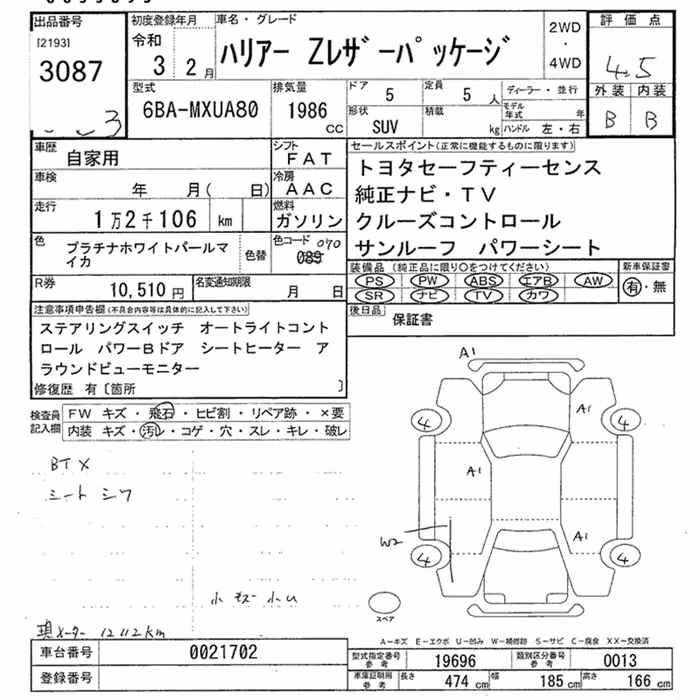 出品番号
[2193]
3087
3
初度登録年月
令和
3 2月
車名・グレード
ハリアー Zレザーパッケージ
2WD
・
4WD
評価点
4.5
外装 内装
B B
型式
6BA-MXUA80
排気量
1986
CC
ドア
5
定員
5人
形状
SUV
積載
kg
ディーラー・並行
モデル
年式 年
ハンドル 左・右
車歴
自家用
シフト
FAT
車検
年 月( 日)
冷房
AAC
走行
1万2千106 km
燃料
ガソリン
色
プラチナホワイトパールマ
イカ
色替
色コード 070
089
R券
10,510円
名変通知期限
月 日
セールスポイント(正常に機能するものに限ります)
トヨタセーフティーセンス
純正ナビ・TV
クルーズコントロール
サンルーフ パワーシート
装備品(純正品に限り○をつけてください)
PS PW ABS エアB AW
SR ナビ TV カワ
新車保証書
有・無
後日品
保証書
注意事項申告欄(不具合内容等は具体的に記入して下さい)
ステアリングスイッチ オートライトコント
ロール パワーBドア シートヒーター ア
ラウンドビューモニター
修復歴 有〔箇所 〕
検査員
記入欄
FW キズ・飛石・ヒビ割・リペア跡・×要
内装 キズ・汚レ・コゲ・穴・スレ・キレ・破レ
BTX
シートシワ
小キズ 小U
現メーター 12112km
A1
A1
4
4
A1
W2
A1
4
4
スペア
A-キズ E-エクボ U-凹み W-補修跡 S-サビ C-腐食 XX-交換済
車台番号
0021702
登録番号
型式指定番号
参考
19696
類別区分番号
参考
0013
車庫証明用
参考
長さ
474 cm
幅
185 cm
高さ
166 cm